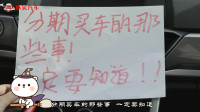 分期买车的那
些事!
一定要知道!!
分期买车的那些事 一定要知道